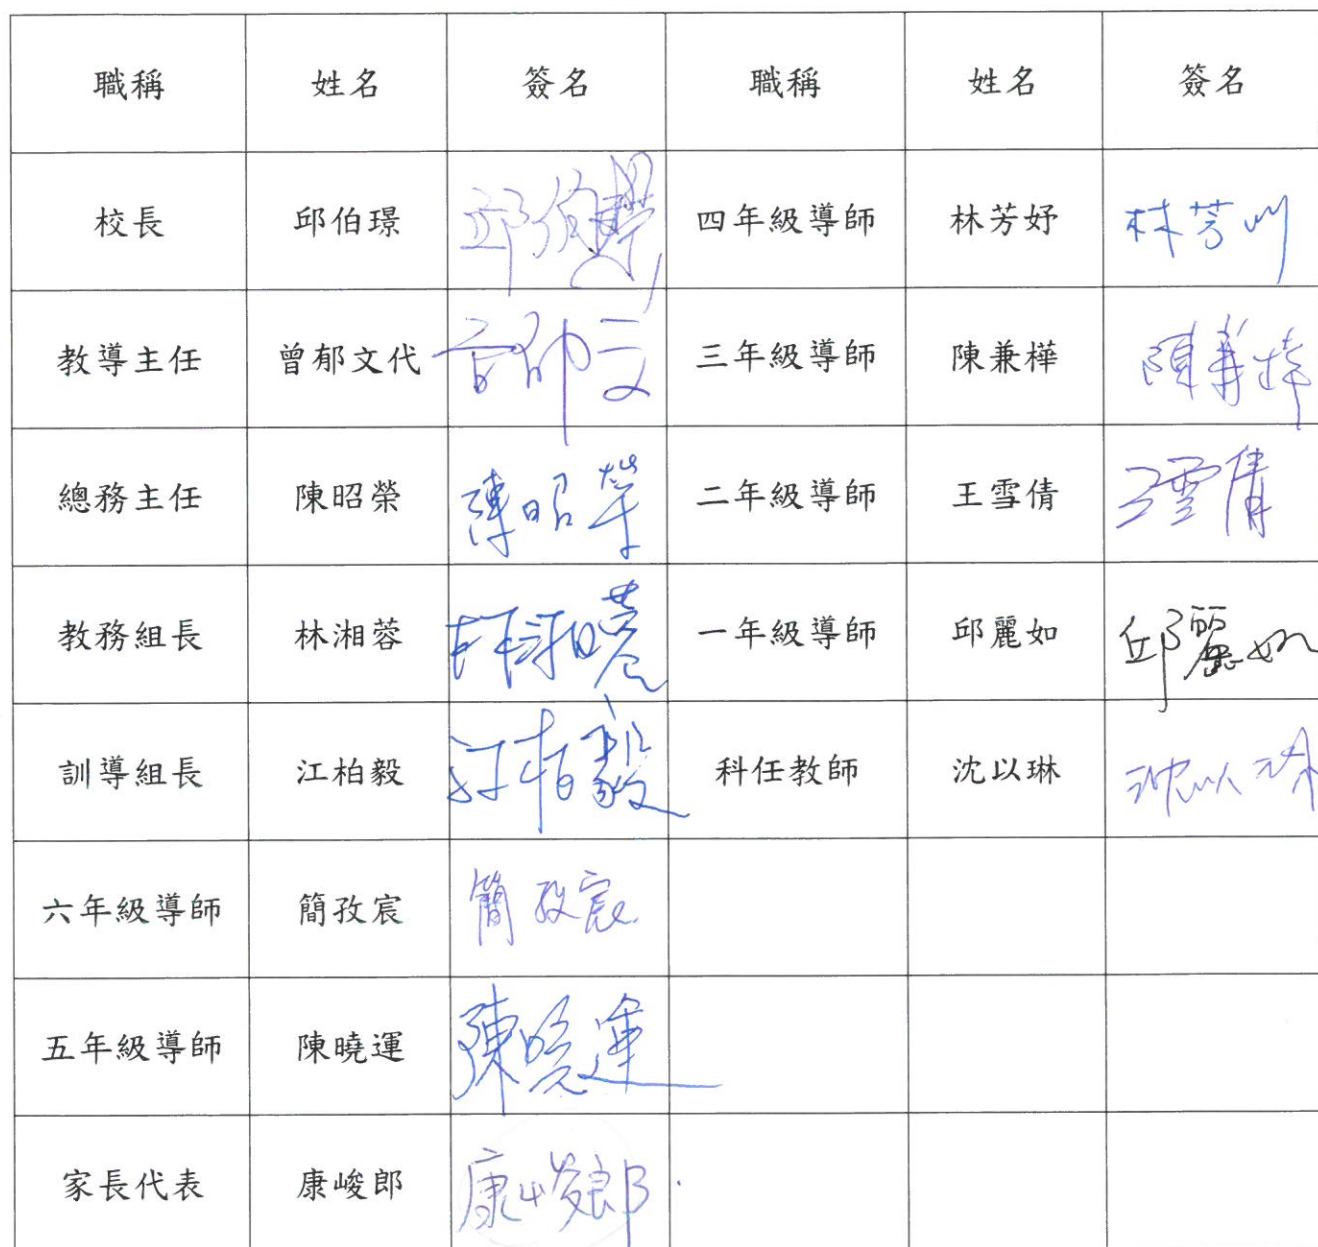 職稱 姓名 簽名 職稱 姓名 簽名
校長 邱伯璟 四年級導師 林芳妤 林芳
教導主任 曾郁文代 三年級導師 陳兼樺 陳
總務主任 陳昭榮 陳昭榮 二年級導師 王雪倩 王雪倩
教務組長 林湘蓉 一年級導師 邱麗如 邱麗如
訓導組長 江柏毅 江柏毅 科任教師 沈以琳 沈以琳
六年級導師 簡孜宸 簡孜宸
五年級導師 陳曉運 陳曉運
家長代表 康峻郎 康峻郎